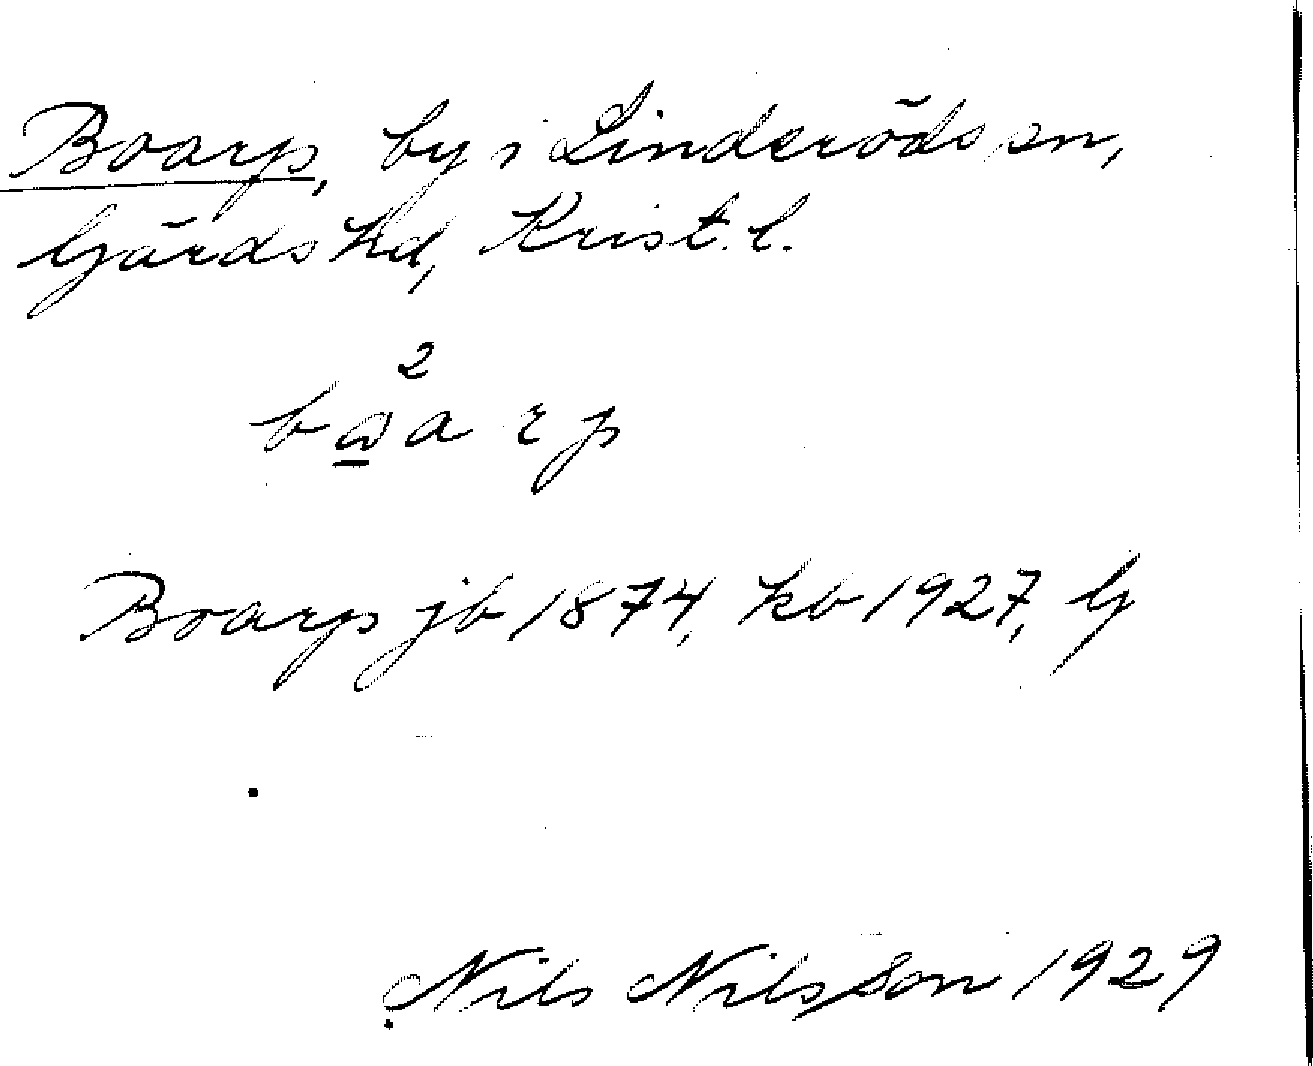 Boarp, by i Linderöds sn,
Gärds hd, Krist. l.
2
b ω a r p
Boarp jb 1874, kb 1927, G
Nils Nilsson 1929